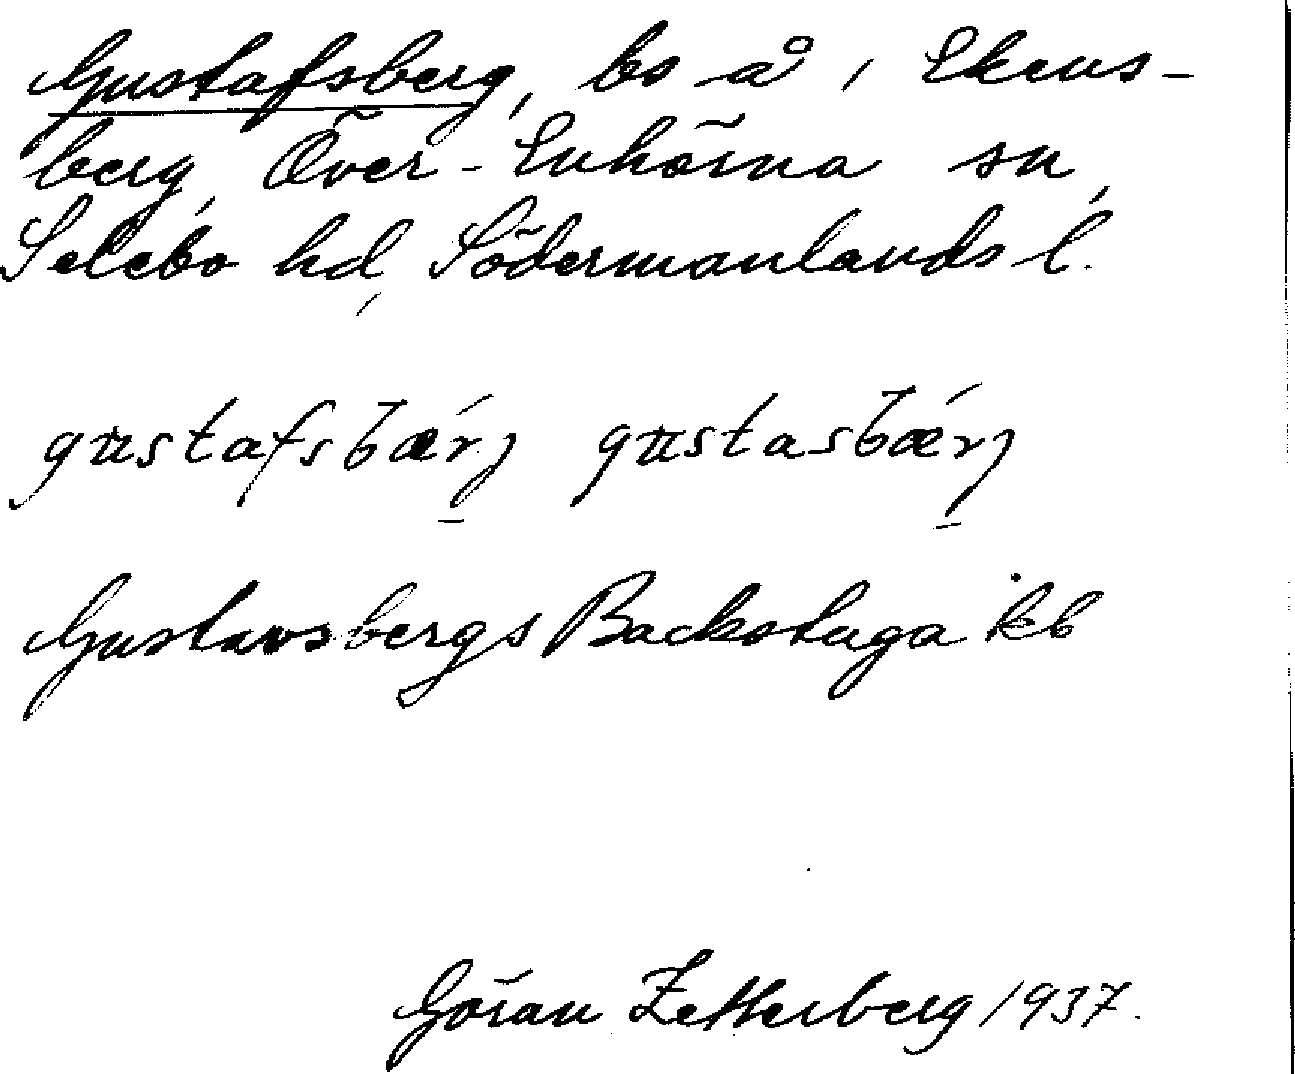 Gustafsberg, bs å, Ekens-
berg, Över-Enhörna sn,
Selebo hd, Södermanlands l.
gustafsbærj gustasbærj
Gustavsbergs Backstuga kb
Göran Zetterberg 1937.